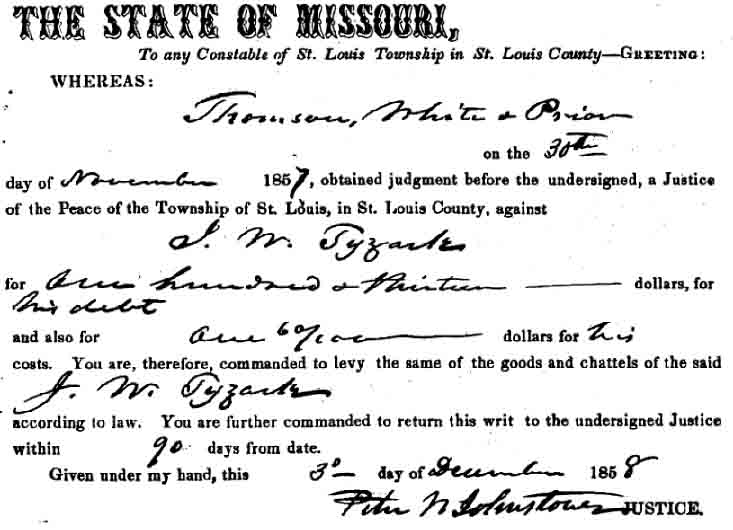 THE STATE OF MISSOURI,
To any Constable of St. Louis Township in St. Louis County—GREETING:
WHEREAS:
Thomson, White & Prior
on the 30th
day of November 1857, obtained judgment before the undersigned, a Justice
of the Peace of the Township of St. Louis, in St. Louis County, against
J. W. Tyzack
for One hundred & thirteen dollars, for
his debt
and also for One 60/100 dollars for his
costs. You are, therefore, commanded to levy the same of the goods and chattels of the said
J. W. Tyzack
according to law. You are further commanded to return this writ to the undersigned Justice
within 90 days from date.
Given under my hand, this 3d day of December 1858
Peter W Johnstone JUSTICE.